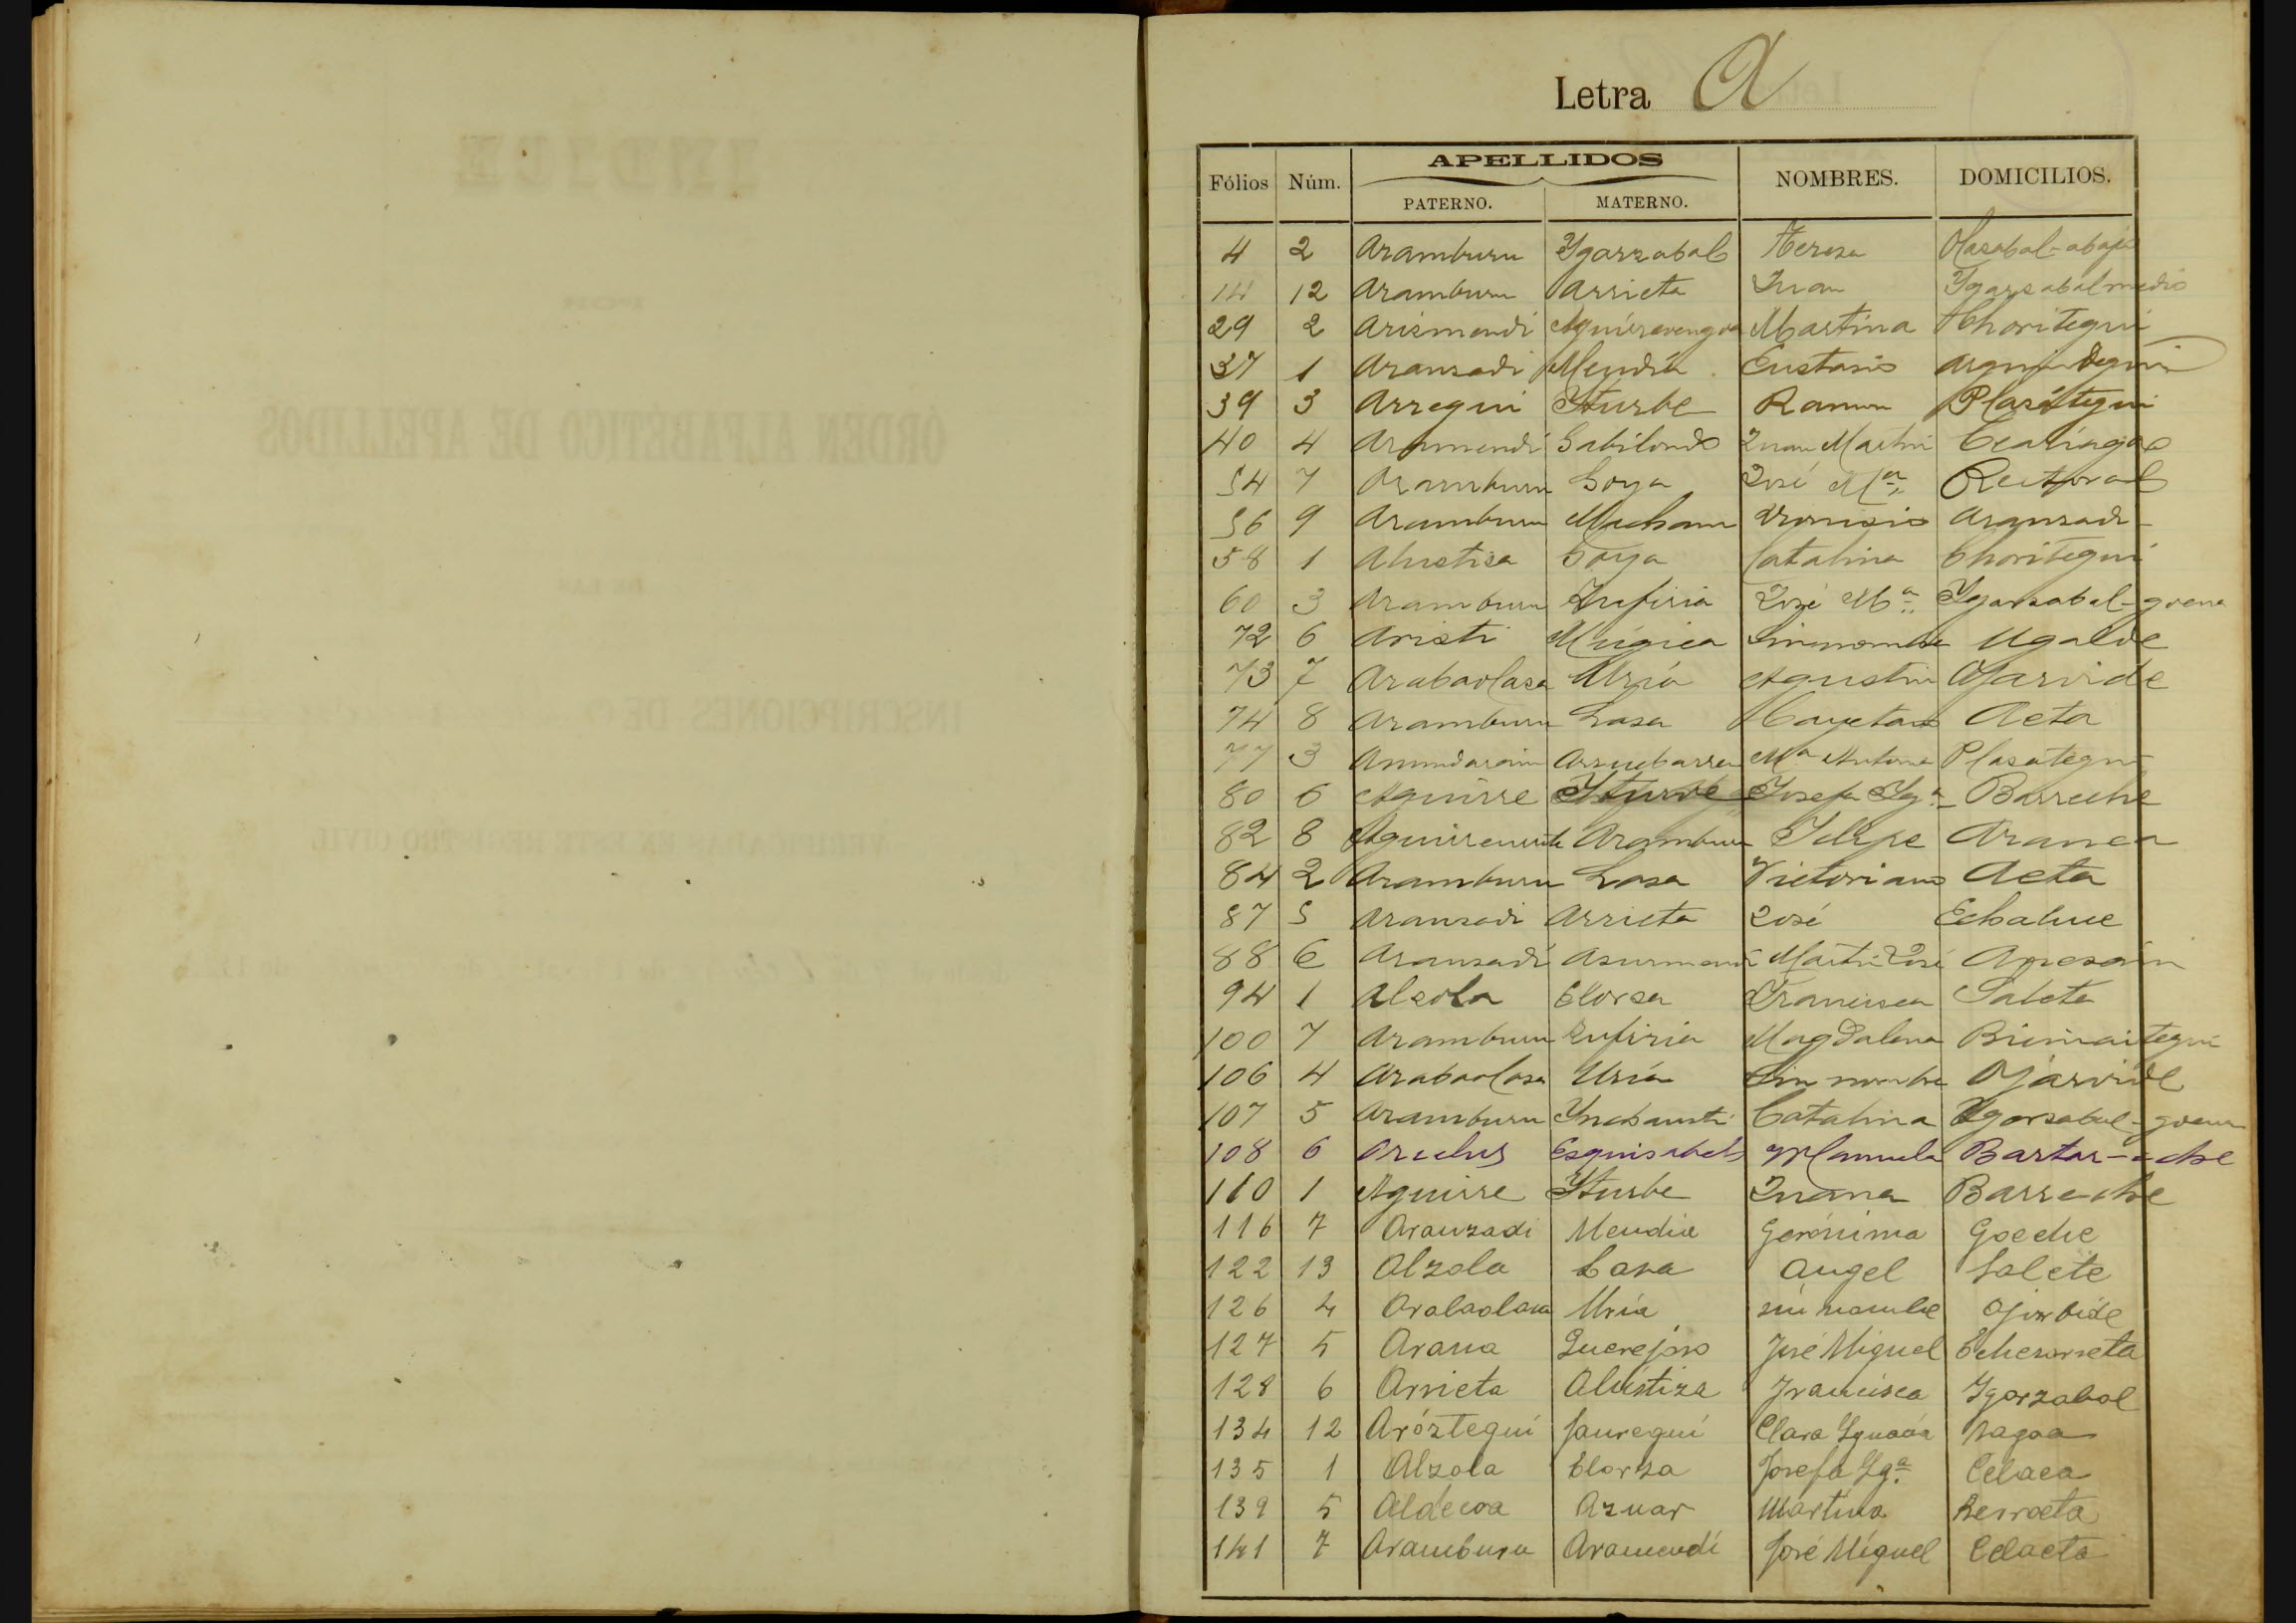 Letra A
Fólios Núm. APELLIDOS NOMBRES. DOMICILIOS.
PATERNO. MATERNO.
4 2 Aramburu Ygarzabal Teresa Olasabal-abajo
14 12 Aramburu Arrieta Juan Ygarzabal medio
29 2 Arismendi Martina Choritegui
37 1 Aransadi Mendia Eustasio
39 3 Arregui Yturbe Ramon Plasategui
40 4 Aramendi Gabilondo Juan Martin
54 7 Aramburu Goya José Mª Rectoral
56 9 Aramburu Dionisio Aransadi
58 1 Alustisa Goya Catalina Choritegui
60 3 Aramburu Zufiria José Mª Ygarsabal-goena
72 6 Aristi Múgica Sin nombre Ugalde
73 7 Arabaolasa Uría Agustin Ojarvide
74 8 Aramburu Lasa Cayetano Aeta
77 3 Asuebarrena Mª Antonia Plasategui
80 6 Aguirre Yturbe Josefa Igª Barreche
82 8 Aramburu Felipe Aranea
84 2 Aramburu Lasa Victoriano Aeta
87 5 Aransadi Arrieta José Echaluce
88 6 Aransadi Asurmendi Martin José
94 1 Alzola Elorza Francisca Salete
100 7 Aramburu Zufiria Magdalena Birimaitegui
106 4 Arabaolasa Uría Sin nombre Ojarvide
107 5 Aramburu Ynchausti Catalina Ygarsabal-goena
108 6 Areclus Esquisabel Manuela Bastar-eche
110 1 Aguirre Yturbe Juana Barreche
116 7 Aranzadi Mendia Gerónima Goeche
122 13 Alzola Lasa Angel Salete
126 4 Arabaolasa Uría sin nombre Ojarbide
127 5 Arana Querejazo José Miguel Echezarreta
128 6 Arrieta Alustiza Francisca Ygarzabal
134 12 Aróztegui Jauregui Clara Ignacia Sagoa
135 1 Alzola Elorza Josefa Igª Celaea
139 5 Aldecoa Aznar Martina Berroeta
141 7 Aramburu Aramendi José Miguel Celaeta